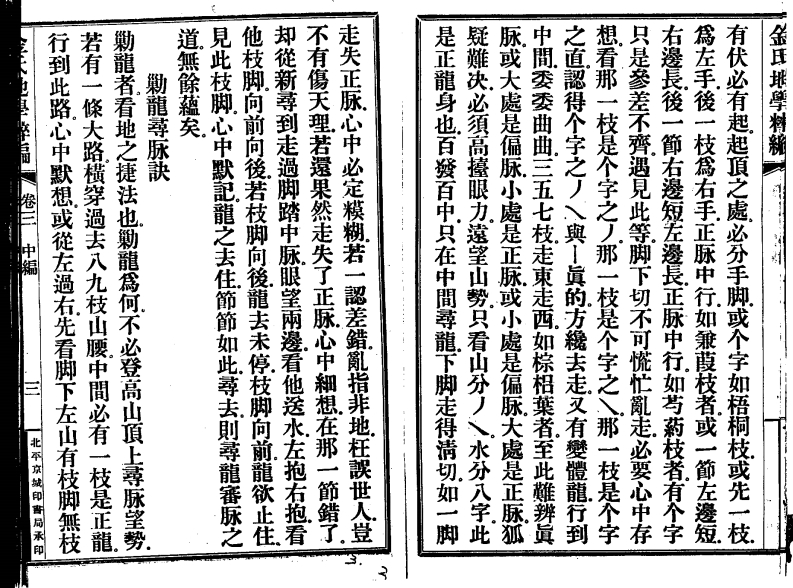 金氏地學粹編
有伏必有起起頂之處必分手脚或个字如梧桐枝或先一枝
爲左手後一枝爲右手正脉中行如蒹葭枝者或一節左邊短
右邊長後一節右邊短左邊長正脉中行如芍葯枝者有个字
只是參差不齊遇見此等脚下切不可慌忙亂走必要心中存
想看那一枝是个字之丿那一枝是个字之乀那一枝是个字
之直認得个字之丿乀與丨眞的方纔去走又有變體龍行到
中間委委曲曲三五七枝走東走西如棕梠葉者至此難辨眞
脉或大處是偏脉小處是正脉或小處是偏脉大處是正脉狐
疑難决必須高擡眼力遠望山勢只看山分丿乀水分八字此
是正龍身也百發百中只在中間尋龍下脚走得淸切如一脚
走失正脉心中必定糢糊若一認差錯亂指非地枉誤世人豈
不有傷天理若還果然走失了正脉心中細想在那一節錯了
却從新尋到走過脚踏中脉眼望兩邊看他送水左抱右抱看
他枝脚向前向後若枝脚向後龍去未停枝脚向前龍欲止住
見此枝脚心中默記龍之去住節節如此尋去則尋龍審脉之
道無餘蘊矣
勦龍尋脉訣
勦龍者看地之捷法也勦龍爲何不必登高山頂上尋脉望勢
若有一條大路橫穿過去八九枝山腰中間必有一枝是正龍
行到此路心中默想或從左過右先看脚下左山有枝脚無枝
金氏地學粹編
卷三 中編
三
北平京城印書局承印
3.
3